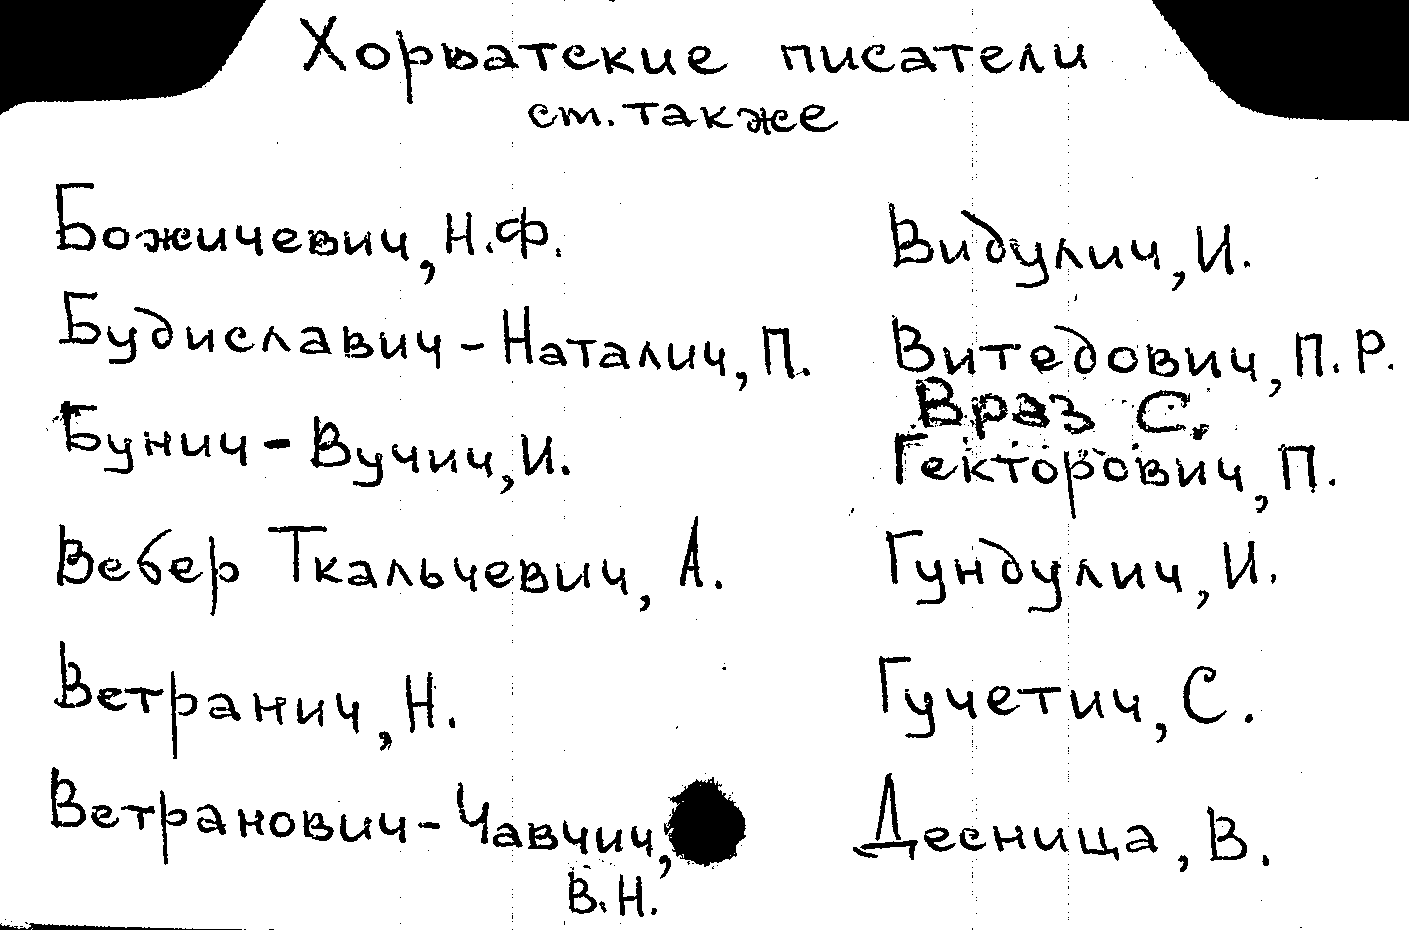 Хорватские писатели
ст. также
Божичевич, Н.Ф.
Будиславич-Наталич, П.
Бунич-Вучич, И.
Вебер Ткальчевич, А.
Ветранич, Н.
Ветранович-Чавчич,
В.Н.
Видулич, И.
Витедович, П.Р.
Враз С.
Гекторович, П.
Гундулич, И.
Гучетич, С.
Десница, В.